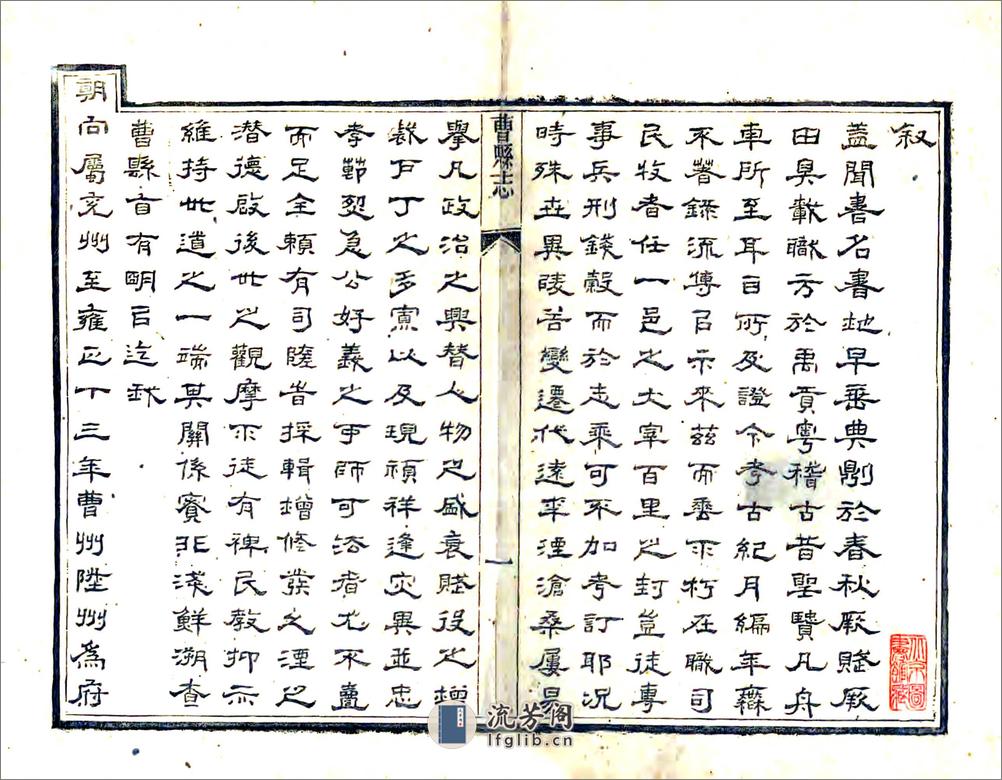 敘
蓋聞書名書地早垂典則於春秋厥賦厥
田具載職方於禹貢粵稽古昔聖賢凡舟
車所至耳目所及證今考古紀月編年靡
不著錄流傳以示來茲而垂不朽在職司
民牧者任一邑之大宰百里之封豈徒專
事兵刑錢穀而於志乘可不加考訂耶況
時殊世異陵谷變遷代遠年湮滄桑屢易
曹縣志
一
舉凡政治之興替人物之盛衰賦役之增
裁戶丁之多寡以及現禎祥逢灾異並忠
孝節烈急公好義之事師可法者尤不盡
而足全賴有司隨旹採輯增修發之湮之
潛德啟後世之觀摩不徒有裨民教抑亦
維持世道之一端其關係賓非淺鮮溯查
曹縣首有明以迄我
朝向屬兗州至雍正十三年曹州陞州為府
流芳阁
lfglib.cn